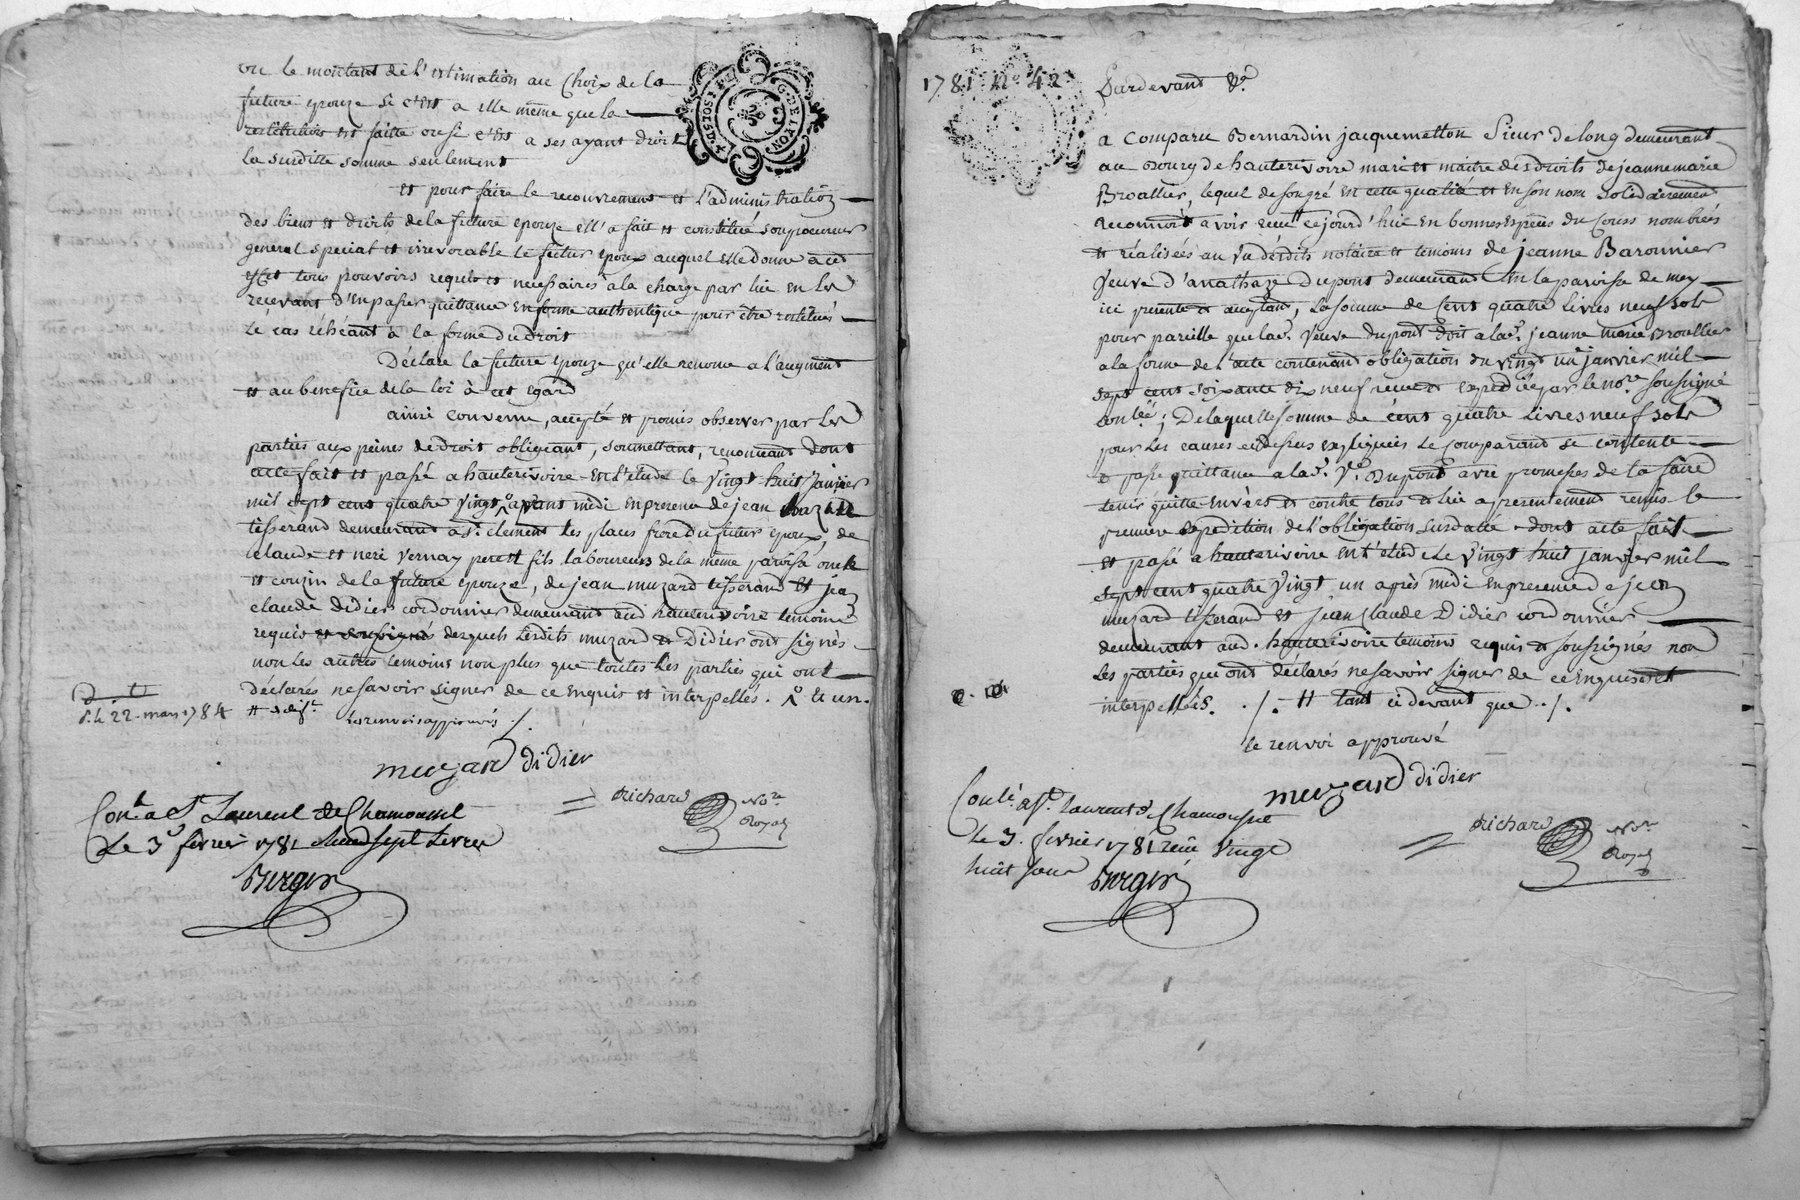 ou le montant de l'estimation au Choix de la
future epouze si c'est a elle même que la
restitution est faitte ou si c'est a ses ayant droit
la surditte somme seulement
et pour faire le recouvrement et l'administration
des biens et droits de la future epouze ell' a fait et constitué son procureur
general special et irrevocable le futur epoux auquel elle donne a cet
effet tous pouvoirs requis et necessaires à la charge par lui en les
recevant d'en passer quittance en forme authentique pour être restitués
le cas échéant à la forme du droit
Déclare la future epouze qu'elle renonce a l'augment
et au benefice de la loi à cet egard
ainsi convenu, accepté et promis observer par les
parties aux peines de droit obligeant, soumettant, renonceant dont
acte fait et passé a hauterivoire en l'etude le vingt huit janvier
mil sept cent quatre vingt avant midi en presence de jean
tisserand demeurant a St. clement les places frere du futur epoux, de
claude et neri vernay pere et fils laboureurs de la même paroisse oncle
et couzin de la future epouze, de jean muzard tisserand et jean
claude didier cordonnier demeurant aud hauterivoire temoins
requis et soussignés desquels lesdits muzard et Didier ont signés
non les autres temoins non plus que toutes les parties qui ont
déclarés ne savoir signer de ce enquis et interpellés. et un.
les renvois approuvés ./.
le 22. mars 1784
muzard didier
Richard Nore
Royal
Conlé a St Laurent de Chamousset
Le 3e fevrier 1781 sept Livres
Bergin
1781 no 42
Pardevant &c
a Comparu Bernardin jacquemetton Sieur de long demeurant
au Bourg de hauterivoire mari et maitre des droits de jeanne marie
Broallier, lequel de son gré en cette qualité et en son nom solidairement
reconnoit avoir reçu cejourd'hui en bonnes especes du Cours nombrées
et réalisées au vû desdits notaire et temoins de jeanne Baronnier
veuve d'anathaze Dupont demeurant en la paroisse de mey
ici presente et acceptant, la somme de Cent quatre livres neuf sols
pour pareille que lad. veuve dupont doit a lad. jeanne marie Broallier
a la forme de l'acte contenant obligation du vingt un janvier mil
sept cent soixante dix neuf reçue et expediée par le nore soussigné
Conlé; De laquelle somme de cent quatre Livres neuf sols
pour les causes cidessus expliquées le Comparant se contente
et passe quittance a lad. Ve. Dupont avec promesses de la faire
tenir quitte envers et contre tous et lui a presentement remis la
premiere expedition de l'obligation surdatte dont acte fait
et passé a hauterivoire en l'etude Le vingt huit janvier mil
sept cent quatre vingt un après midi en presence de jean
muzard tisserand et jean Claude Didier cordonnier
demeurant aud. hauterivoire temoins requis et soussignés non
les parties qui ont déclarés ne savoir signer de ce enquises et
interpellés. ./. # tant ci devant que ./.
le renvoi approuvé
muzard didier
Richard Nore
Royal
Conlé. a St. laurent de Chamousset
le 3. fevrier 1781 reçu vingt
huit sous
Bergin